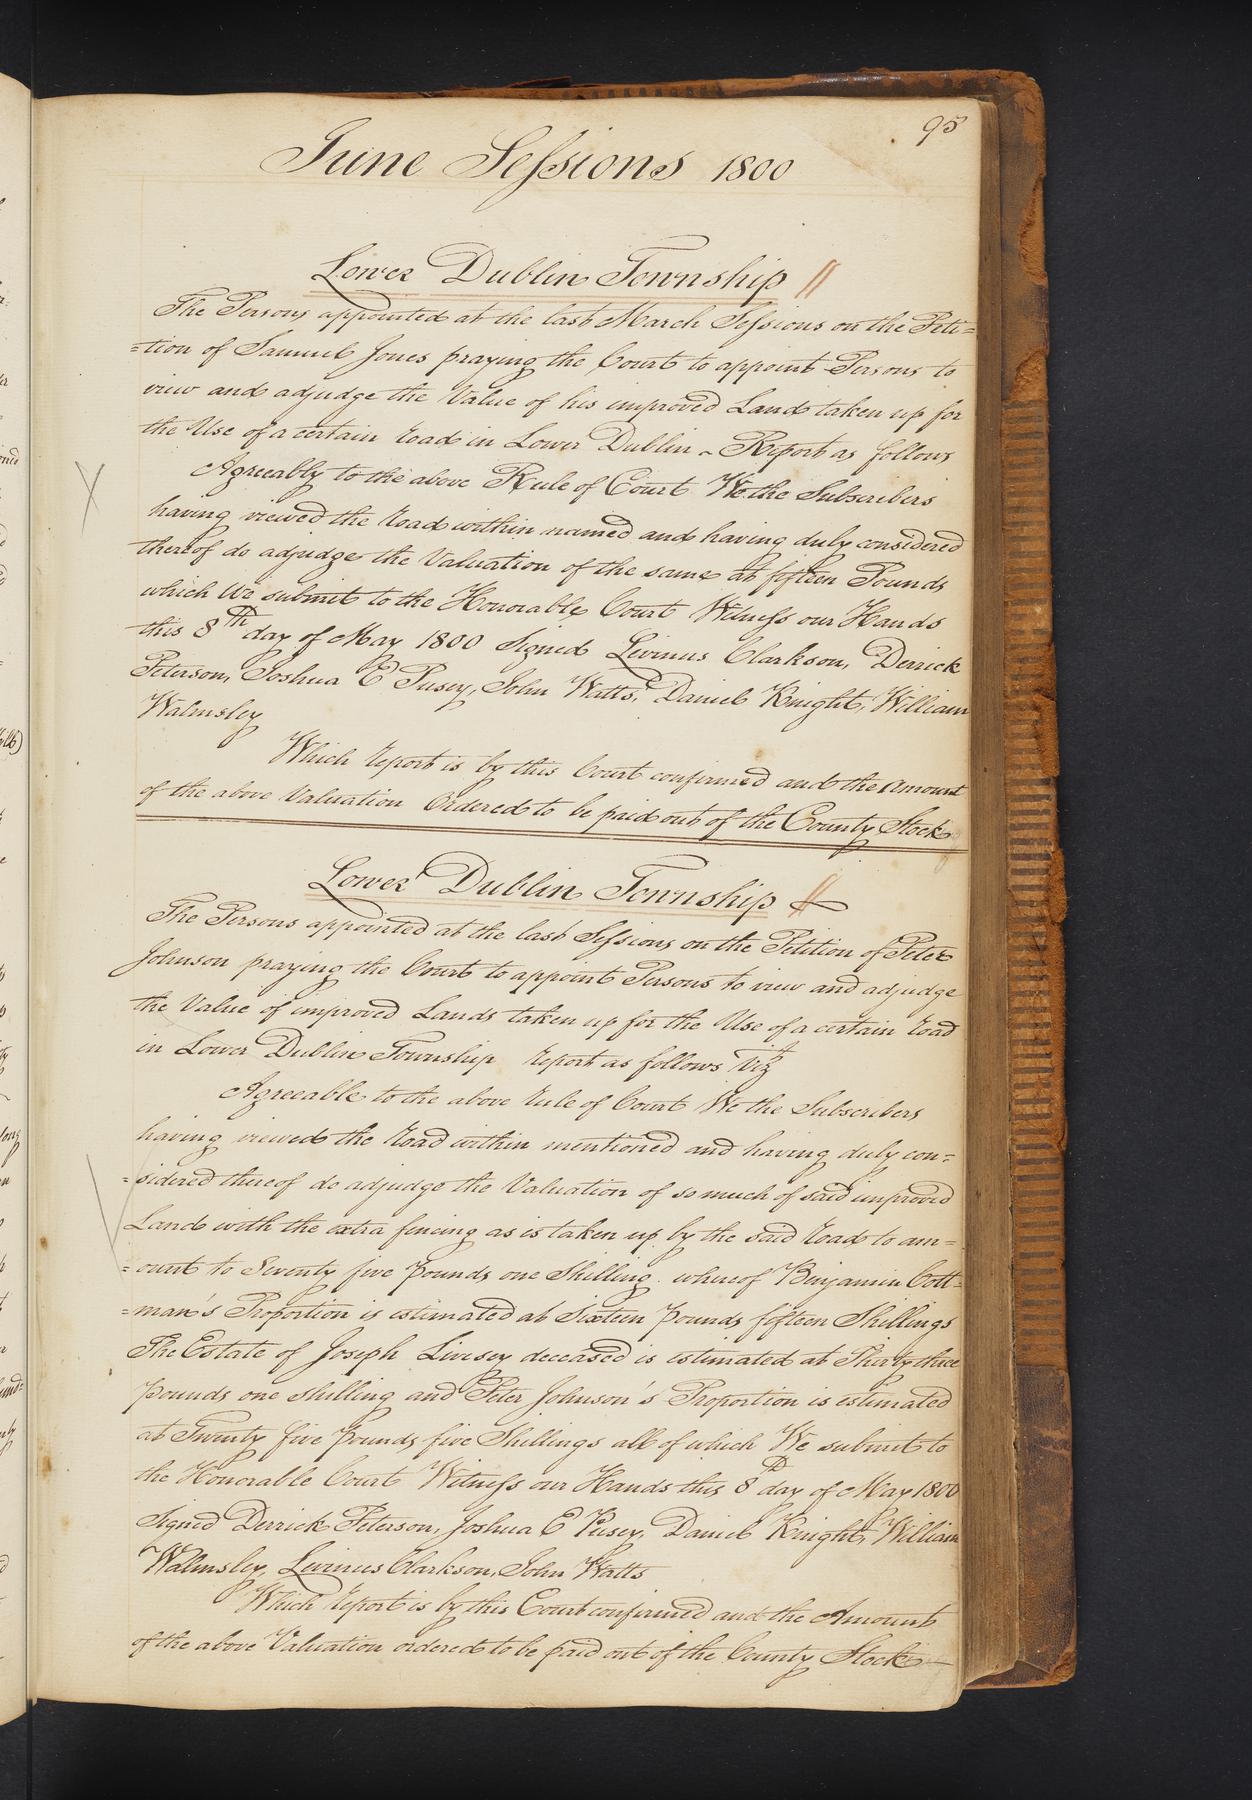 95
June Sessions 1800
Lower Dublin Township
The Persons appointed at the last March Sessions on the Peti=
=tion of Samuel Jones praying the Court to appoint Persons to
view and adjudge the Value of his improved Land taken up for
the Use of a certain Road in Lower Dublin ~ Report as follows
Agreeably to the above Rule of Court We the Subscribers
having viewed the Road within named and having duly considered
thereof do adjudge the Valuation of the same at fifteen Pounds
which We submit to the Honorable Court Witness our Hands
this 8th day of May 1800 Signed Levinus Clarkson, Derrick
Peterson, Joshua C Pusey, John Watts, Daniel Knight, William
Walmsley
Which Report is by this Court confirmed and the Amount
of the above Valuation Ordered to be paid out of the County Stock
Lower Dublin Township
The Persons appointed at the last Sessions on the Petition of Peter
Johnson praying the Court to appoint Persons to view and adjudge
the Value of improved Lands taken up for the Use of a certain Road
in Lower Dublin Township Report as follows Vizt
Agreeable to the above Rule of Court We the Subscribers
having viewed the Road within mentioned and having duly con=
=sidered thereof do adjudge the Valuation of so much of said improved
Land with the extra fencing as is taken up by the said Road to am=
=ount to Seventy five pounds one Shilling. whereof Benjamin Cott=
=man's Proportion is estimated at Sixteen pounds fifteen Shillings
The Estate of Joseph Livesey deceased is estimated at Thirty three
pounds one shilling and Peter Johnson's Proportion is estimated
at Twenty five pounds five Shillings all of which We submit to
the Honorable Court Witness our Hands this 8th day of May 1800
Signed Derrick Peterson, Joshua C Pusey, Daniel Knight, William
Walmsley, Levinus Clarkson, John Watts
Which Report is by this Court confirmed and the Amount
of the above Valuation ordered to be paid out of the County Stock